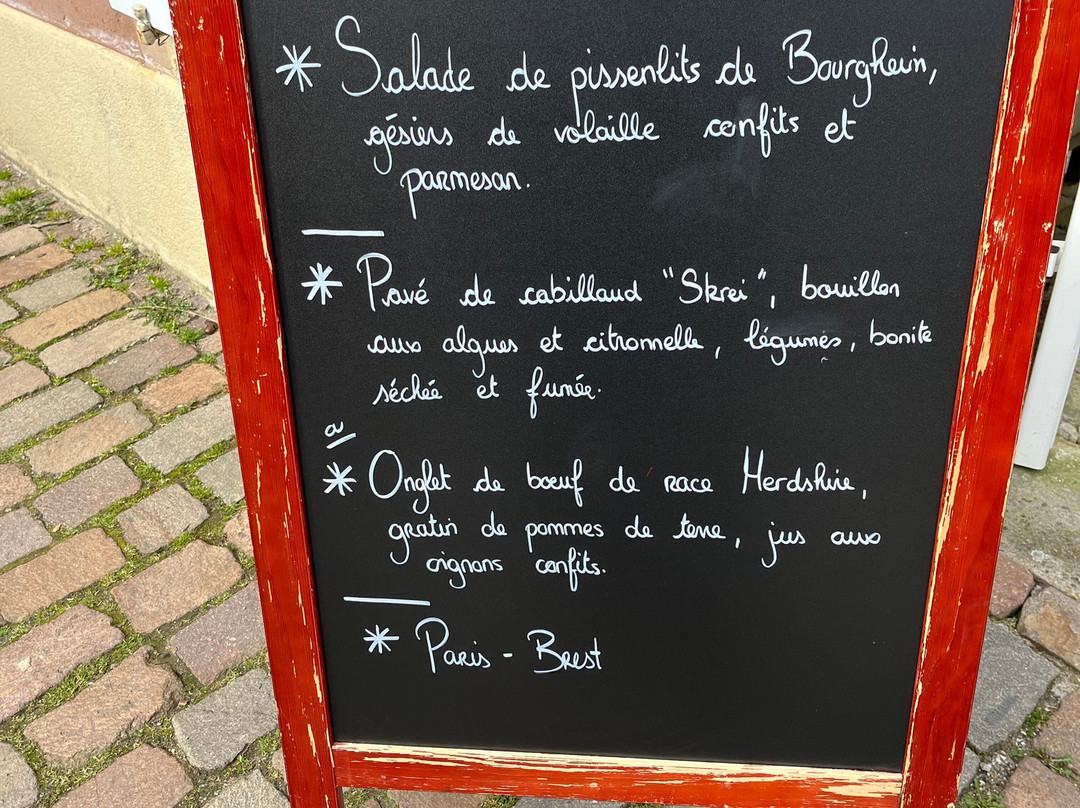 * Salade de pissenlits de Bourgheim,
gésiers de volaille confits et
parmesan.
* Pavé de cabillaud "Skrei", bouillon
aux algues et citronnelle, légumes, bonite
séchée et fumée.
ou
* Onglet de bœuf de race Herdshire,
gratin de pommes de terre, jus aux
oignons confits.
* Paris - Brest